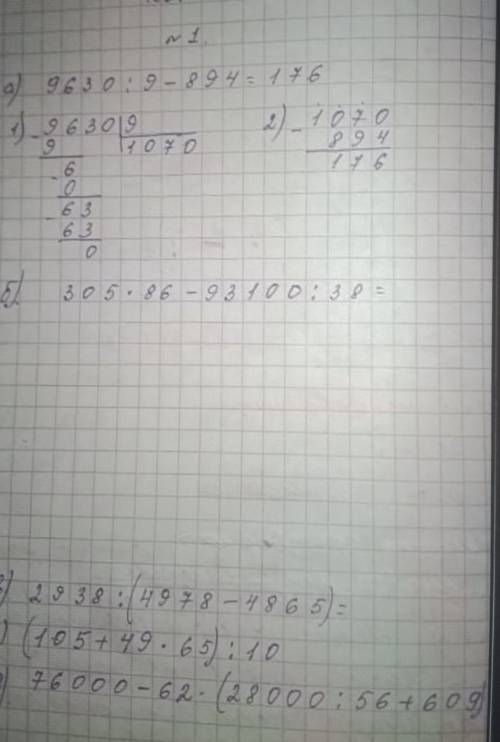 №1.
а) 9630 : 9 - 894 = 176
1) - 9630 | 9
9 1070
- 6
0
- 63
63
0
2) - 1070
894
176
б) 305 · 86 - 93100 : 38 =
) 2938 : (4978 - 4865) =
) (105 + 49 · 65) : 10
) 76000 - 62 · (28000 : 56 + 609)